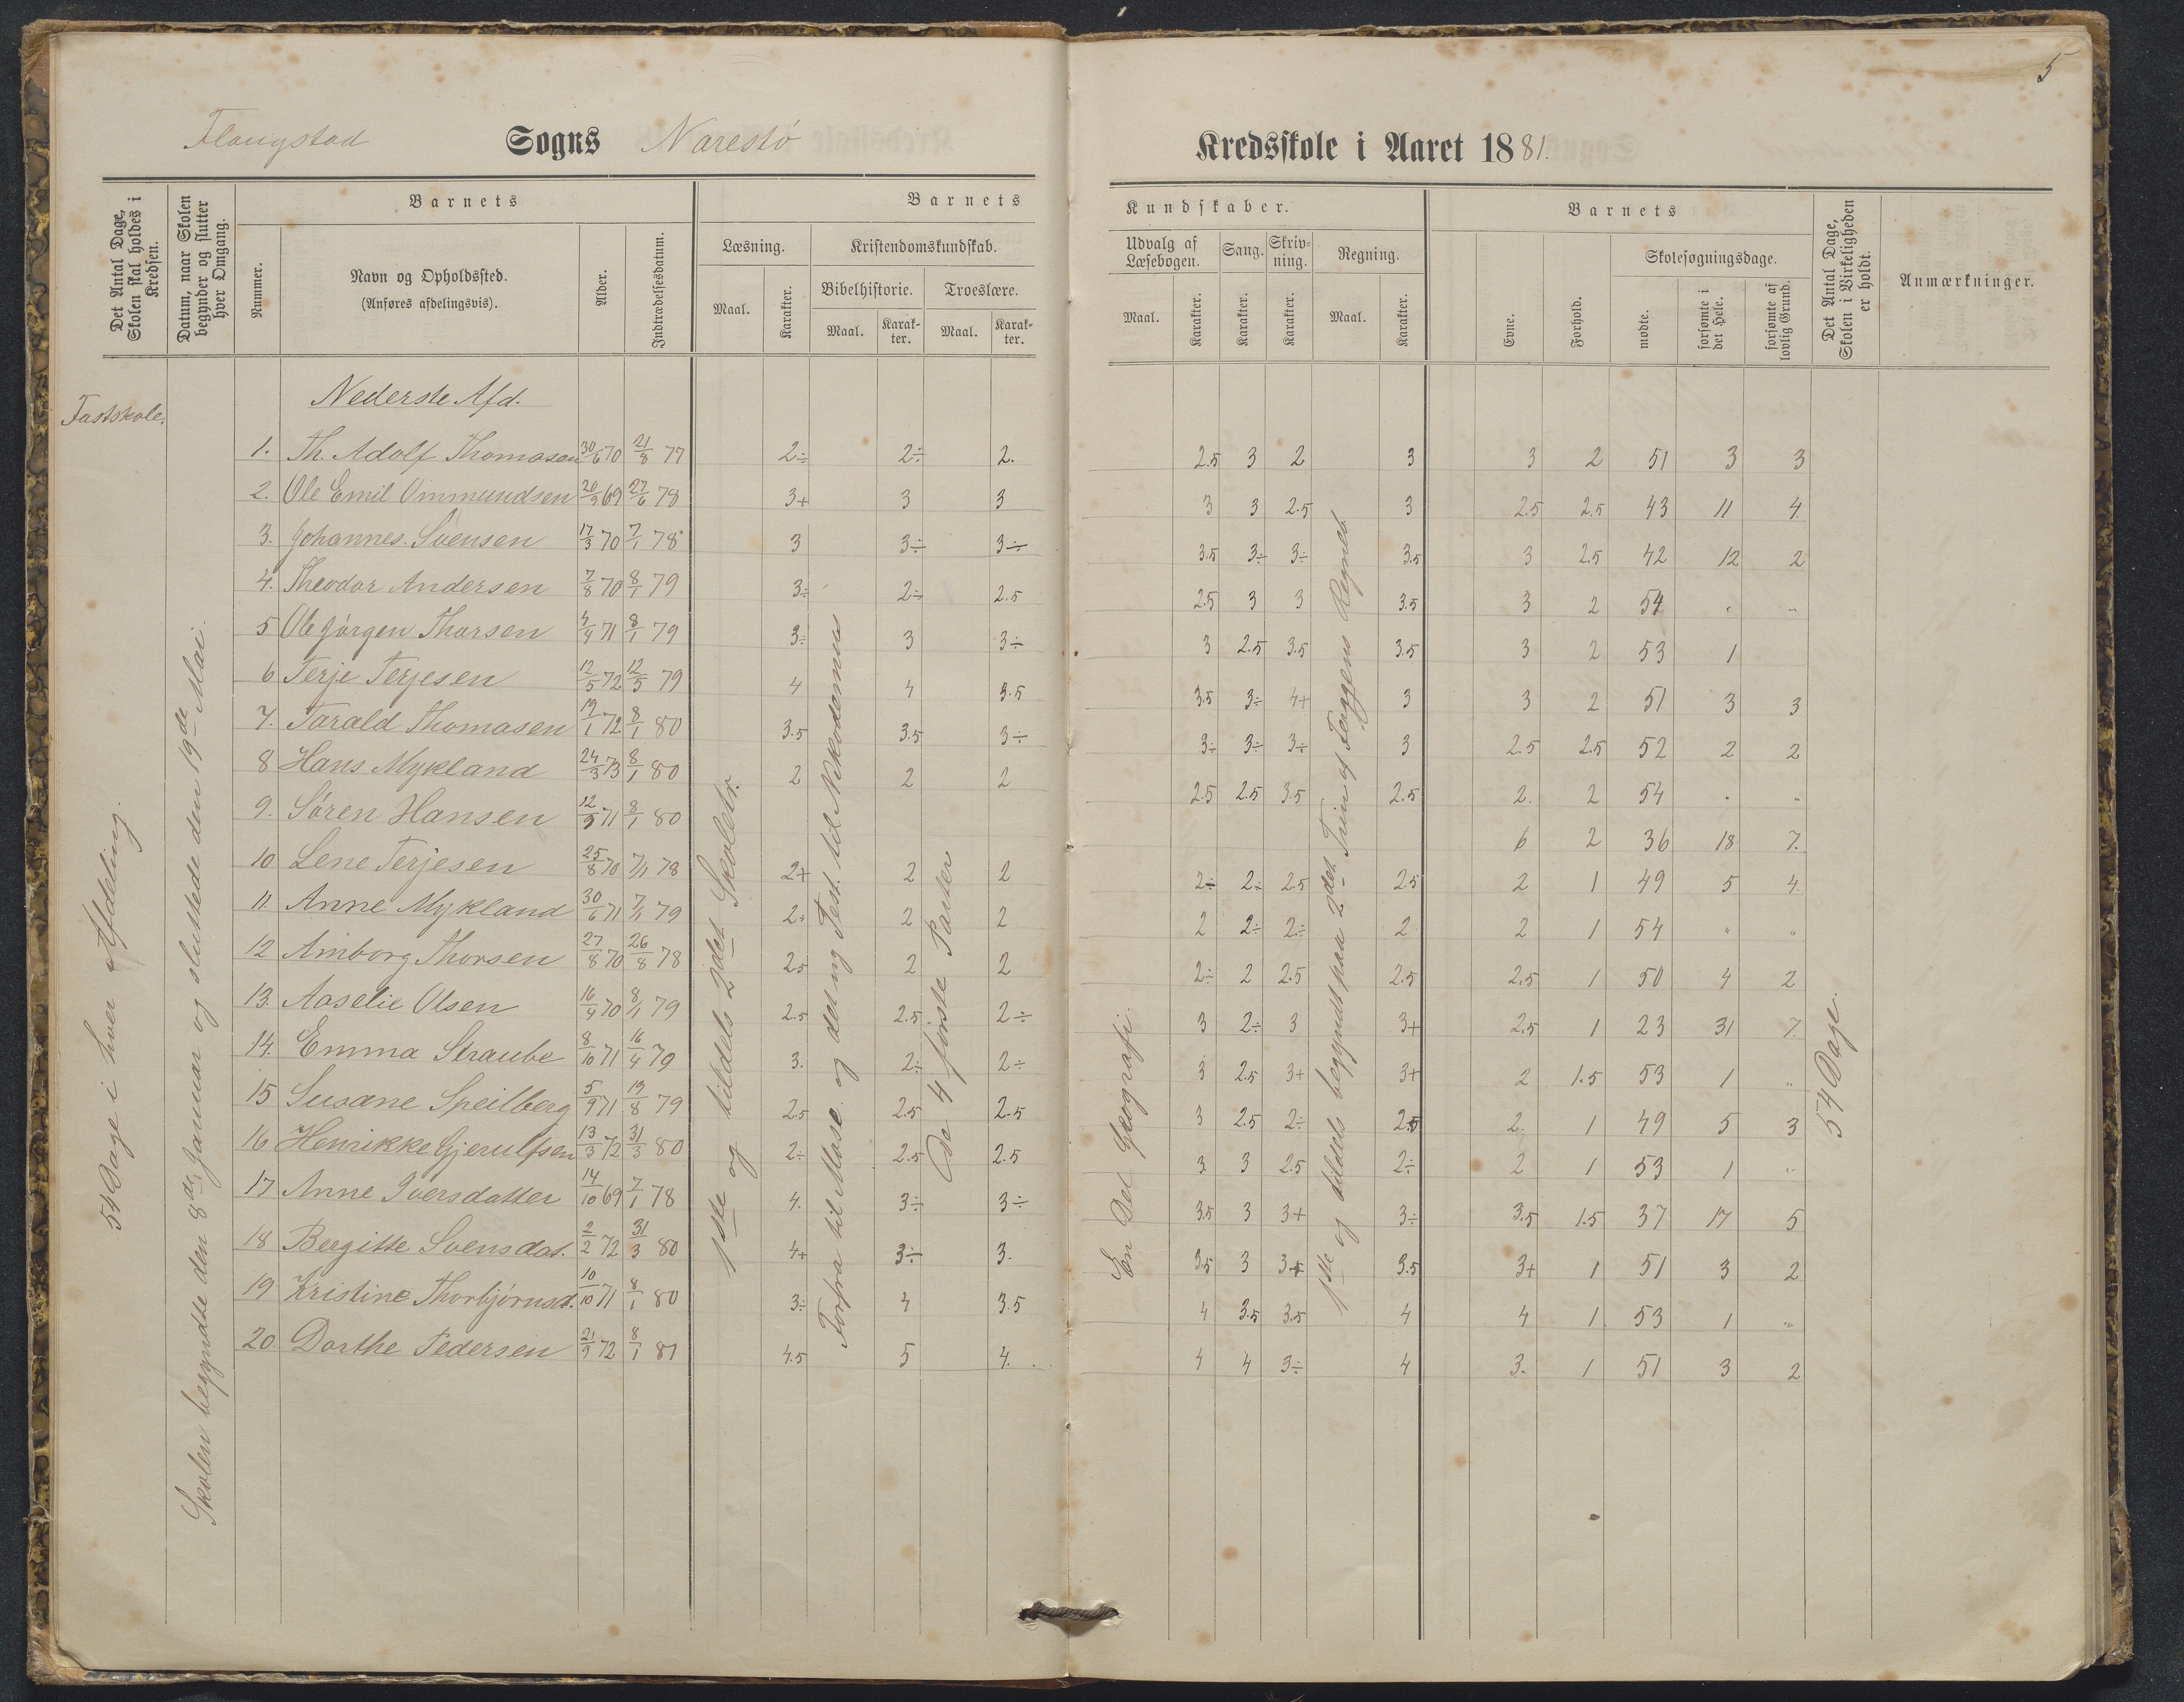 5
Flangstad Sogns Narestö Kredsskole i Aaret 1881.
Det Antal Dage, Skolen skal holdes i Kredsen.
Datum, naar Skolen begynder og slutter hver Omgang.
Barnets
Nummer.
Navn og Opholdssted. (Anføres afdelingsvis).
Alder.
Indtrædelsesdatum.
Barnets Kundskaber.
Læsning.
Maal.
Karakter.
Kristendomskundskab.
Bibelhistorie.
Maal.
Karakter.
Troeslære.
Maal.
Karakter.
Udvalg af Læsebogen.
Maal.
Karakter.
Sang.
Karakter.
Skrivning.
Karakter.
Regning.
Maal.
Karakter.
Barnets
Evne.
Forhold.
Skolesøgningsdage.
mødte.
forsømte i det Hele.
forsømte af lovlig Grund.
Det Antal Dage, Skolen i Virkeligheden er holdt.
Anmærkninger.
Fastskole.
54 Dage i hver Afdeling.
Skolen begyndte den 8de Januar og sluttede den 19de Mai.
Nederste Afd.
1ste og tildels 2det Skoletr.
Forfra til Mose og det ny Test. til Nikodemus
De 4 første Parter
En Del Geografi.
1ste og tildels begyndt paa 2det Trin af Faggens Regneb
54 Dage.
1. Th. Adolf Thomasen 30/6 70 21/8 77 2÷ 2÷ 2. 2.5 3 2 3 3 2 51 3 3
2. Ole Emil Ommundsen 20/9 69 27/6 78 3+ 3 3 3 3 2.5 3 2.5 2.5 43 11 4
3. Johannes Svensen 17/3 70 7/1 78 3 3÷ 3÷ 3.5 3÷ 3÷ 3.5 3 2.5 42 12 2
4. Theodor Andersen 7/8 70 8/1 79 3÷ 2÷ 2.5 2.5 3 3 3.5 3 2 54 " "
5 Ole Jörgen Thorsen 4/4 71 8/1 79 3÷ 3 3÷ 3 2.5 3.5 3.5 3 2 53 1
6 Terje Terjesen 12/5 72 12/5 79 4 4 3.5 3.5 3÷ 4+ 3 3 2 51 3 3
7. Tarald Thomasen 19/1 72 8/1 80 3.5 3.5 3÷ 3÷ 3÷ 3+ 3 2.5 2.5 52 2 2
8 Hans Mykland 24/3 73 8/1 80 2 2 2 2.5 2.5 3.5 2.5 2. 2 54 " "
9. Sören Hansen 12/9 71 8/1 80 6 2 36 18 7.
10 Lene Terjesen 25/8 70 7/1 78 2+ 2 2 2÷ 2÷ 2.5 2.5 2 1 49 5 4.
11. Anne Mykland 30/6 71 7/1 79 2÷ 2 2 2 2÷ 2÷ 2 2 1 54 " "
12 Amborg Thorsen 27/8 70 26/8 78 2.5 2 2 2÷ 2 2.5 2.5 2.5 1 50 4 2
13. Aaselie Olsen 16/4 70 8/1 79 2.5 2.5 2÷ 3 2÷ 3 3+ 2.5 1 23 31 7.
14. Emma Straube 8/10 71 16/4 79 3. 2÷ 2÷ 3 2.5 3+ 3+ 2 1.5 53 1 "
15 Susane Speilberg 5/9 71 19/8 79 2.5 2.5 2.5 3 2.5 2÷ 2.5 2. 1 49 5 3
16 Henrikke Gjerulfsen 13/3 72 31/3 80 2÷ 2.5 2.5 3 3 2.5 2÷ 2 1 53 1 "
17 Anne Iversdatter 14/10 69 7/1 78 4. 3÷ 3÷ 3.5 3 3+ 3÷ 3.5 1.5 37 17 5
18 Bergitte Svensdat. 2/2 72 31/3 80 4+ 3÷ 3. 3.5 3 3.5 3.5 3+ 1 51 3 2
19. Kristine Thorbjörnsd. 10/10 71 8/1 80 3÷ 4 3.5 4 3.5 3.5 4 4 1 53 1 "
20 Dorthe Pedersen 21/9 72 8/1 81 4.5 5 4. 4 4 3÷ 4 3. 1 51 3 2